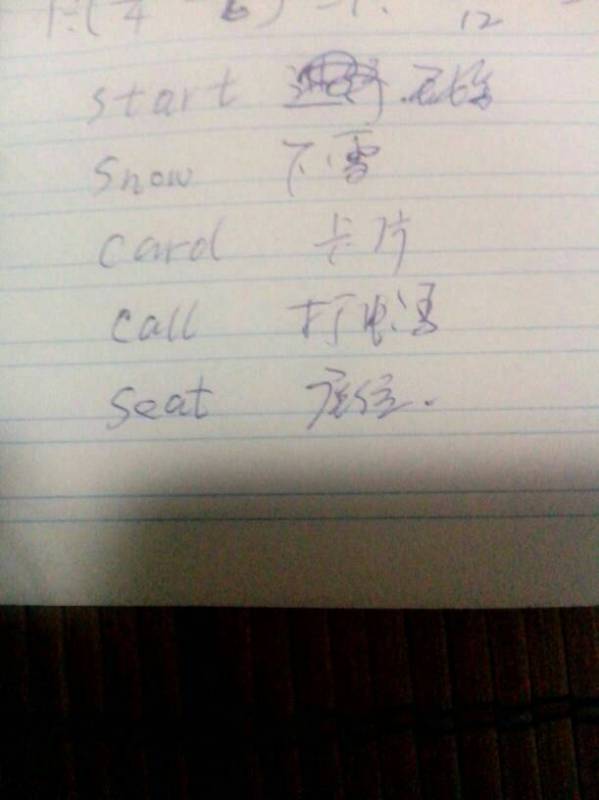 start 开始
snow 下雪
card 卡片
call 打电话
seat 座位.